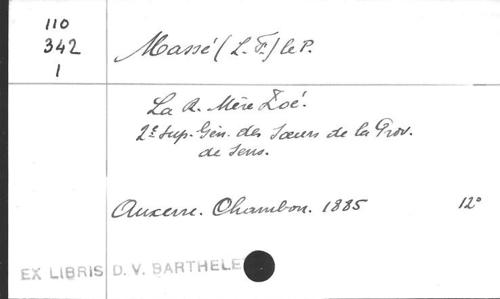 110
342
1
Massé (L. F.) le P.
La R. Mère Zoé.
2e Sup. Gén. des Sœurs de la Prov.
de Sens.
Auxerre. Chambon. 1885 12°
EX LIBRIS D. V. BARTHELE